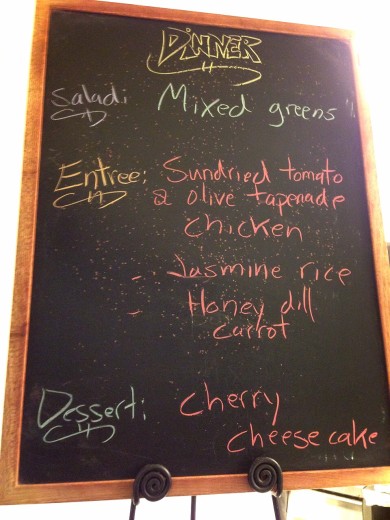 DINNER
Salad: Mixed greens
Entree: Sundried tomato
& olive tapenade
chicken
- Jasmine rice
- Honey dill
carrot
Dessert: Cherry
cheese cake